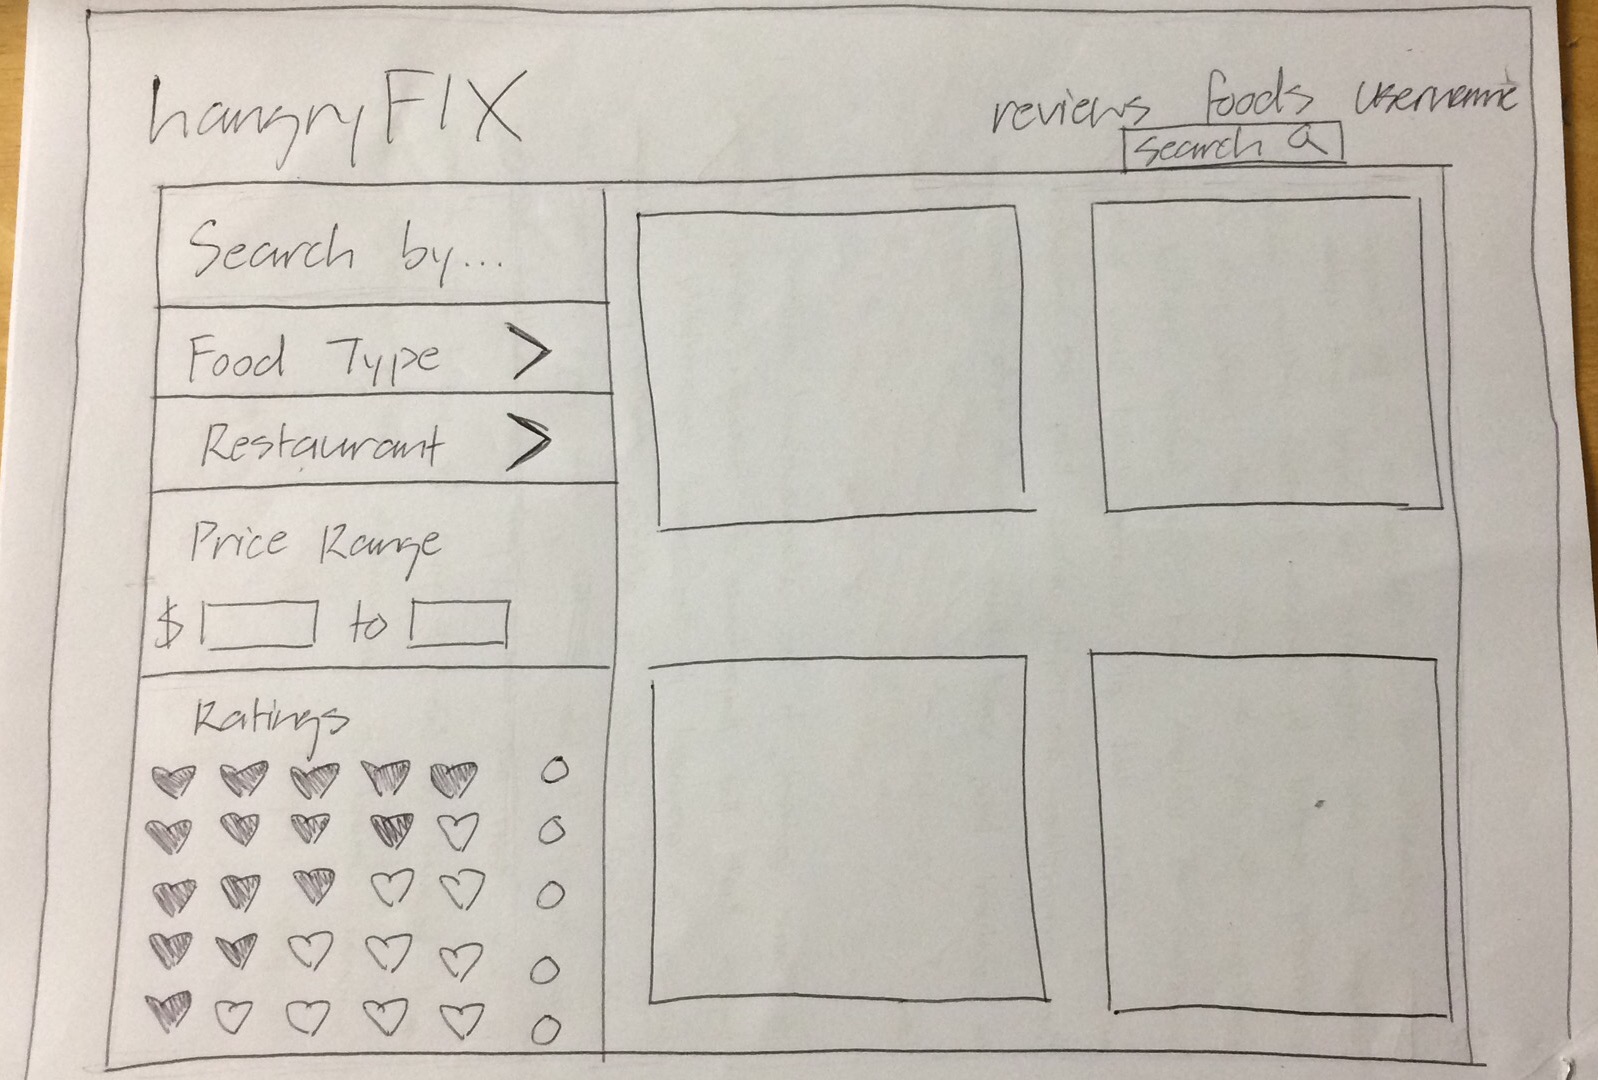 hangryFIX
reviews foods username
Search
Search by...
Food Type >
Restaurant >
Price Range
$ to
Ratings